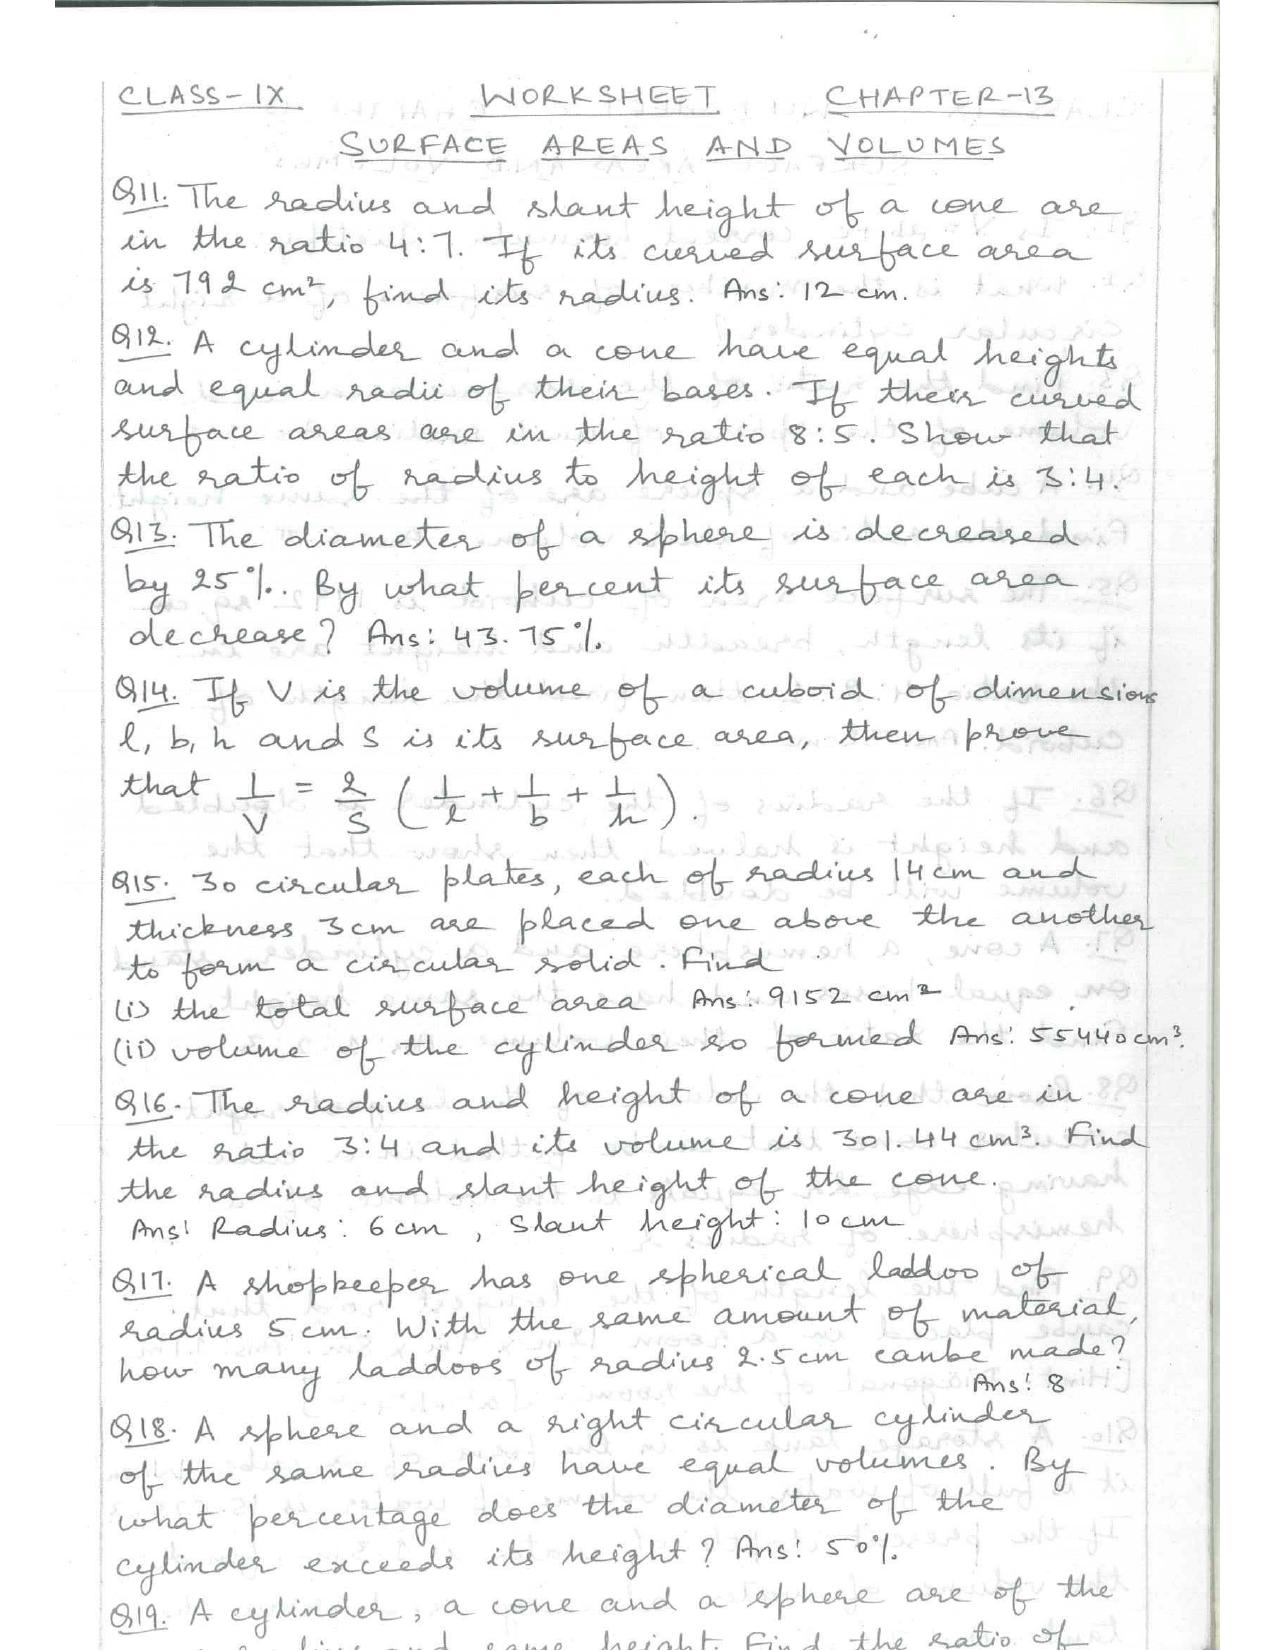 CLASS-IX WORKSHEET CHAPTER-13
SURFACE AREAS AND VOLUMES
Q11. The radius and slant height of a cone are
in the ratio 4:7. If its curved surface area
is 792 cm², find its radius. Ans: 12 cm.
Q12. A cylinder and a cone have equal heights
and equal radii of their bases. If their curved
surface areas are in the ratio 8:5. Show that
the ratio of radius to height of each is 3:4.
Q13. The diameter of a sphere is decreased
by 25%. By what percent its surface area
decrease? Ans: 43.75%.
Q14. If V is the volume of a cuboid of dimensions
l, b, h and S is its surface area, then prove
that 1/V = 2/S (1/l + 1/b + 1/h).
Q15. 30 circular plates, each of radius 14cm and
thickness 3cm are placed one above the another
to form a circular solid. Find
(i) the total surface area Ans: 9152 cm²
(ii) volume of the cylinder so formed Ans: 55440cm³.
Q16. The radius and height of a cone are in
the ratio 3:4 and its volume is 301.44 cm³. Find
the radius and slant height of the cone.
Ans: Radius: 6cm, Slant height: 10cm
Q17. A shopkeeper has one spherical laddoo of
radius 5cm. With the same amount of material,
how many laddoos of radius 2.5cm canbe made?
Ans: 8
Q18. A sphere and a right circular cylinder
of the same radius have equal volumes. By
what percentage does the diameter of the
cylinder exceeds its height? Ans: 50%.
Q19. A cylinder, a cone and a sphere are of the
same height. Find the ratio of